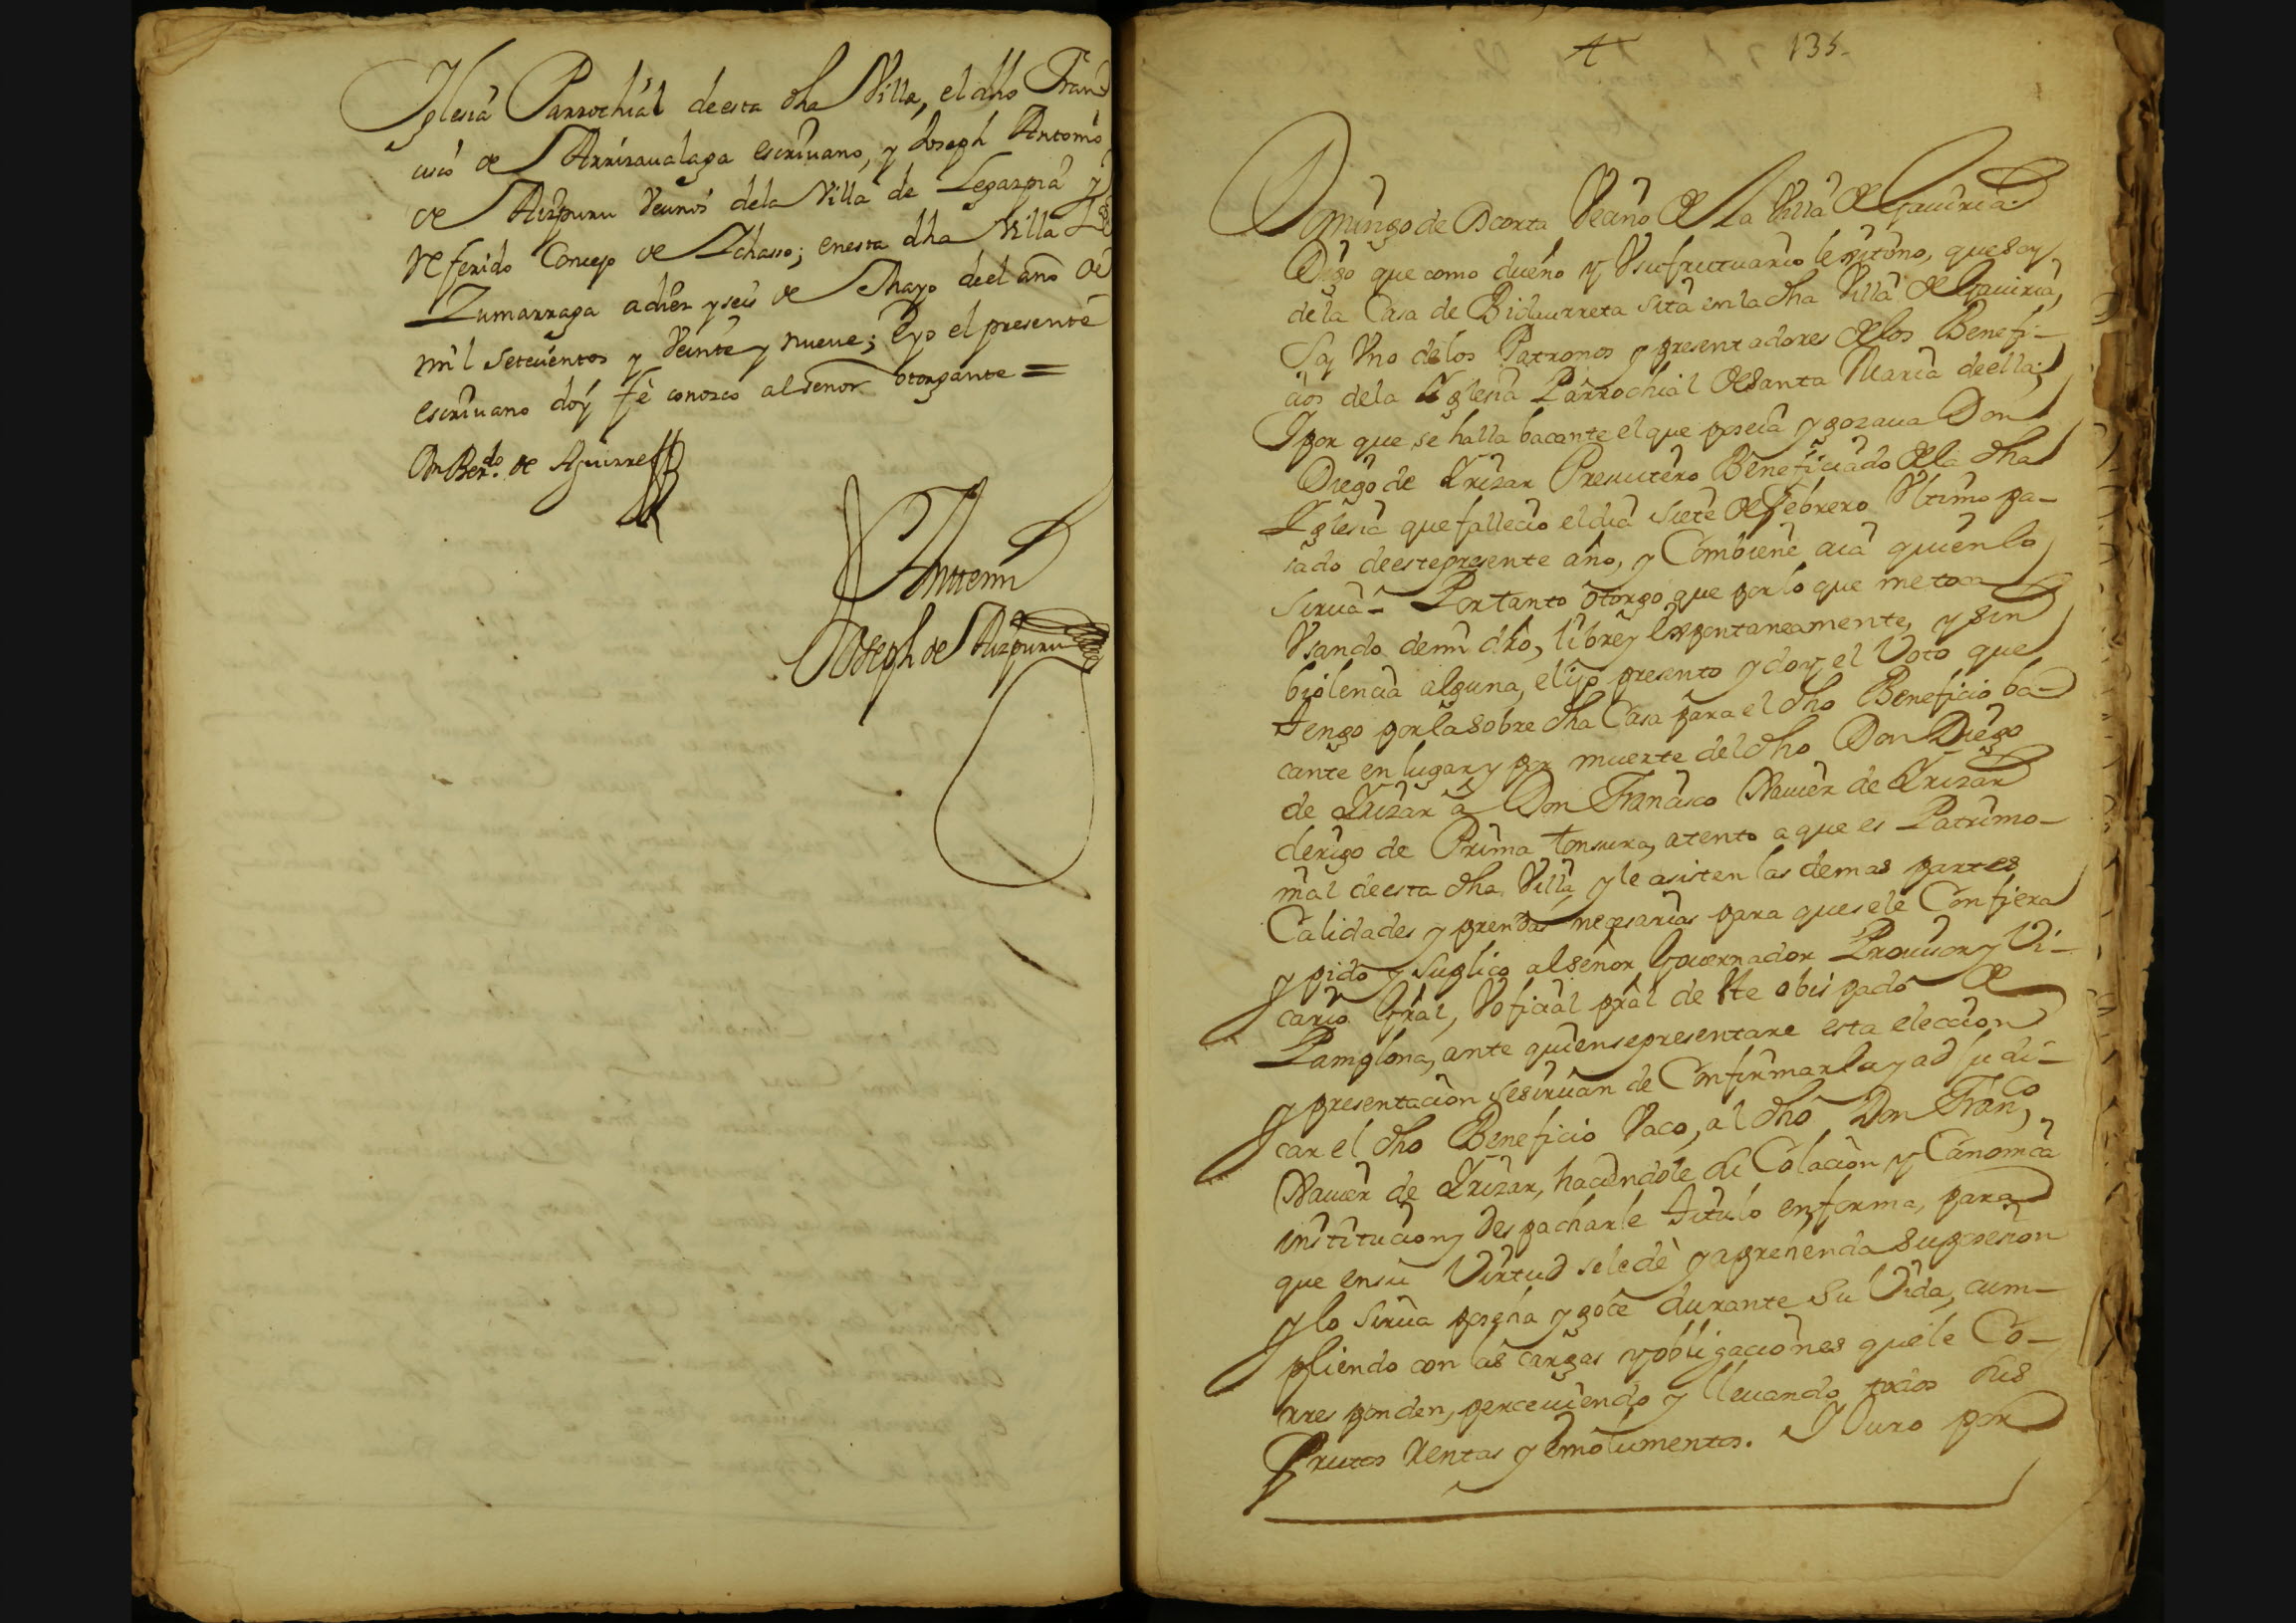 Yglesia Parrochial de esta dha Villa, el dho Fran
cisco de Arrizaualaga escriuano, y Joseph Antonio
de Aizpuru Vecinos dela Villa de Legazpia y
Referido Concejo de Ychasso; en esta dha Villa de
Zumarraga a diez y seis de Mayo de el año de
mil setecientos y Veinte y nueue; E yo el presente
escriuano doy fe conozco al señor otorgante =
Dn Ber.do de Aguirre
Antemi
Joseph de Aizpuru
A 135
Domingo de Acorta Vecino de La Villa de Gauiria
Digo que como dueño y Vsufrutuario legitimo, que soy
de la Casa de Bidaurreta sita en la dha Villa de Gauiria,
Soy Vno de los Patronos y presentadores de los Benefi-
cios de la Yglesia Parrochial de Santa Maria de ella;
Y por que se halla bacante el que poseia y gozaua Don
Diego de Yrizar Presuitero Beneficiado de la dha
Yglesia que fallecio el dia siete de Febrero Vltimo pa-
sado de este presente año, y Combiene aia quien lo
Sirua- Por tanto otorgo que por lo que me toca
Vsando de mi dho, libre y Espontaneamente, y sin
biolencia alguna, elijo presento y doy el Voto que
tengo por la sobre dha Casa para el dho Beneficio ba-
cante en lugar y por muerte del dho Don Diego
de Yrizar a Don Francisco Xauier de Yrizar
clerigo de Prima tonsura, atento a que es Patrimo-
nial de esta dha Villa, y le asisten las demas partes
Calidades y prendas necesarias para que se le Confiera
y pido y suplico al señor Gouernador Prouisor y Vi-
cario Gral, V oficial pral de Ste obispado de
Pamplona, ante quien se presentare esta eleccion
y presentacion se siruan de Confirmarla y ad judi-
car el dho Beneficio Vaco, al dho Don Franco,
Xauier de Yrizar, haciendole di Colacion y Canonica
institucion y despacharle titulo en forma, para
que en su Virtud se le dè y aprehenda su posesion
y lo Sirua posea y goce durante su Vida, cum-
pliendo con las cargas y obligaciones que le Co-
rres ponden, perceuiendo y lleuando todos sus
Frutos Rentas y Emolumentos. Y Juro por